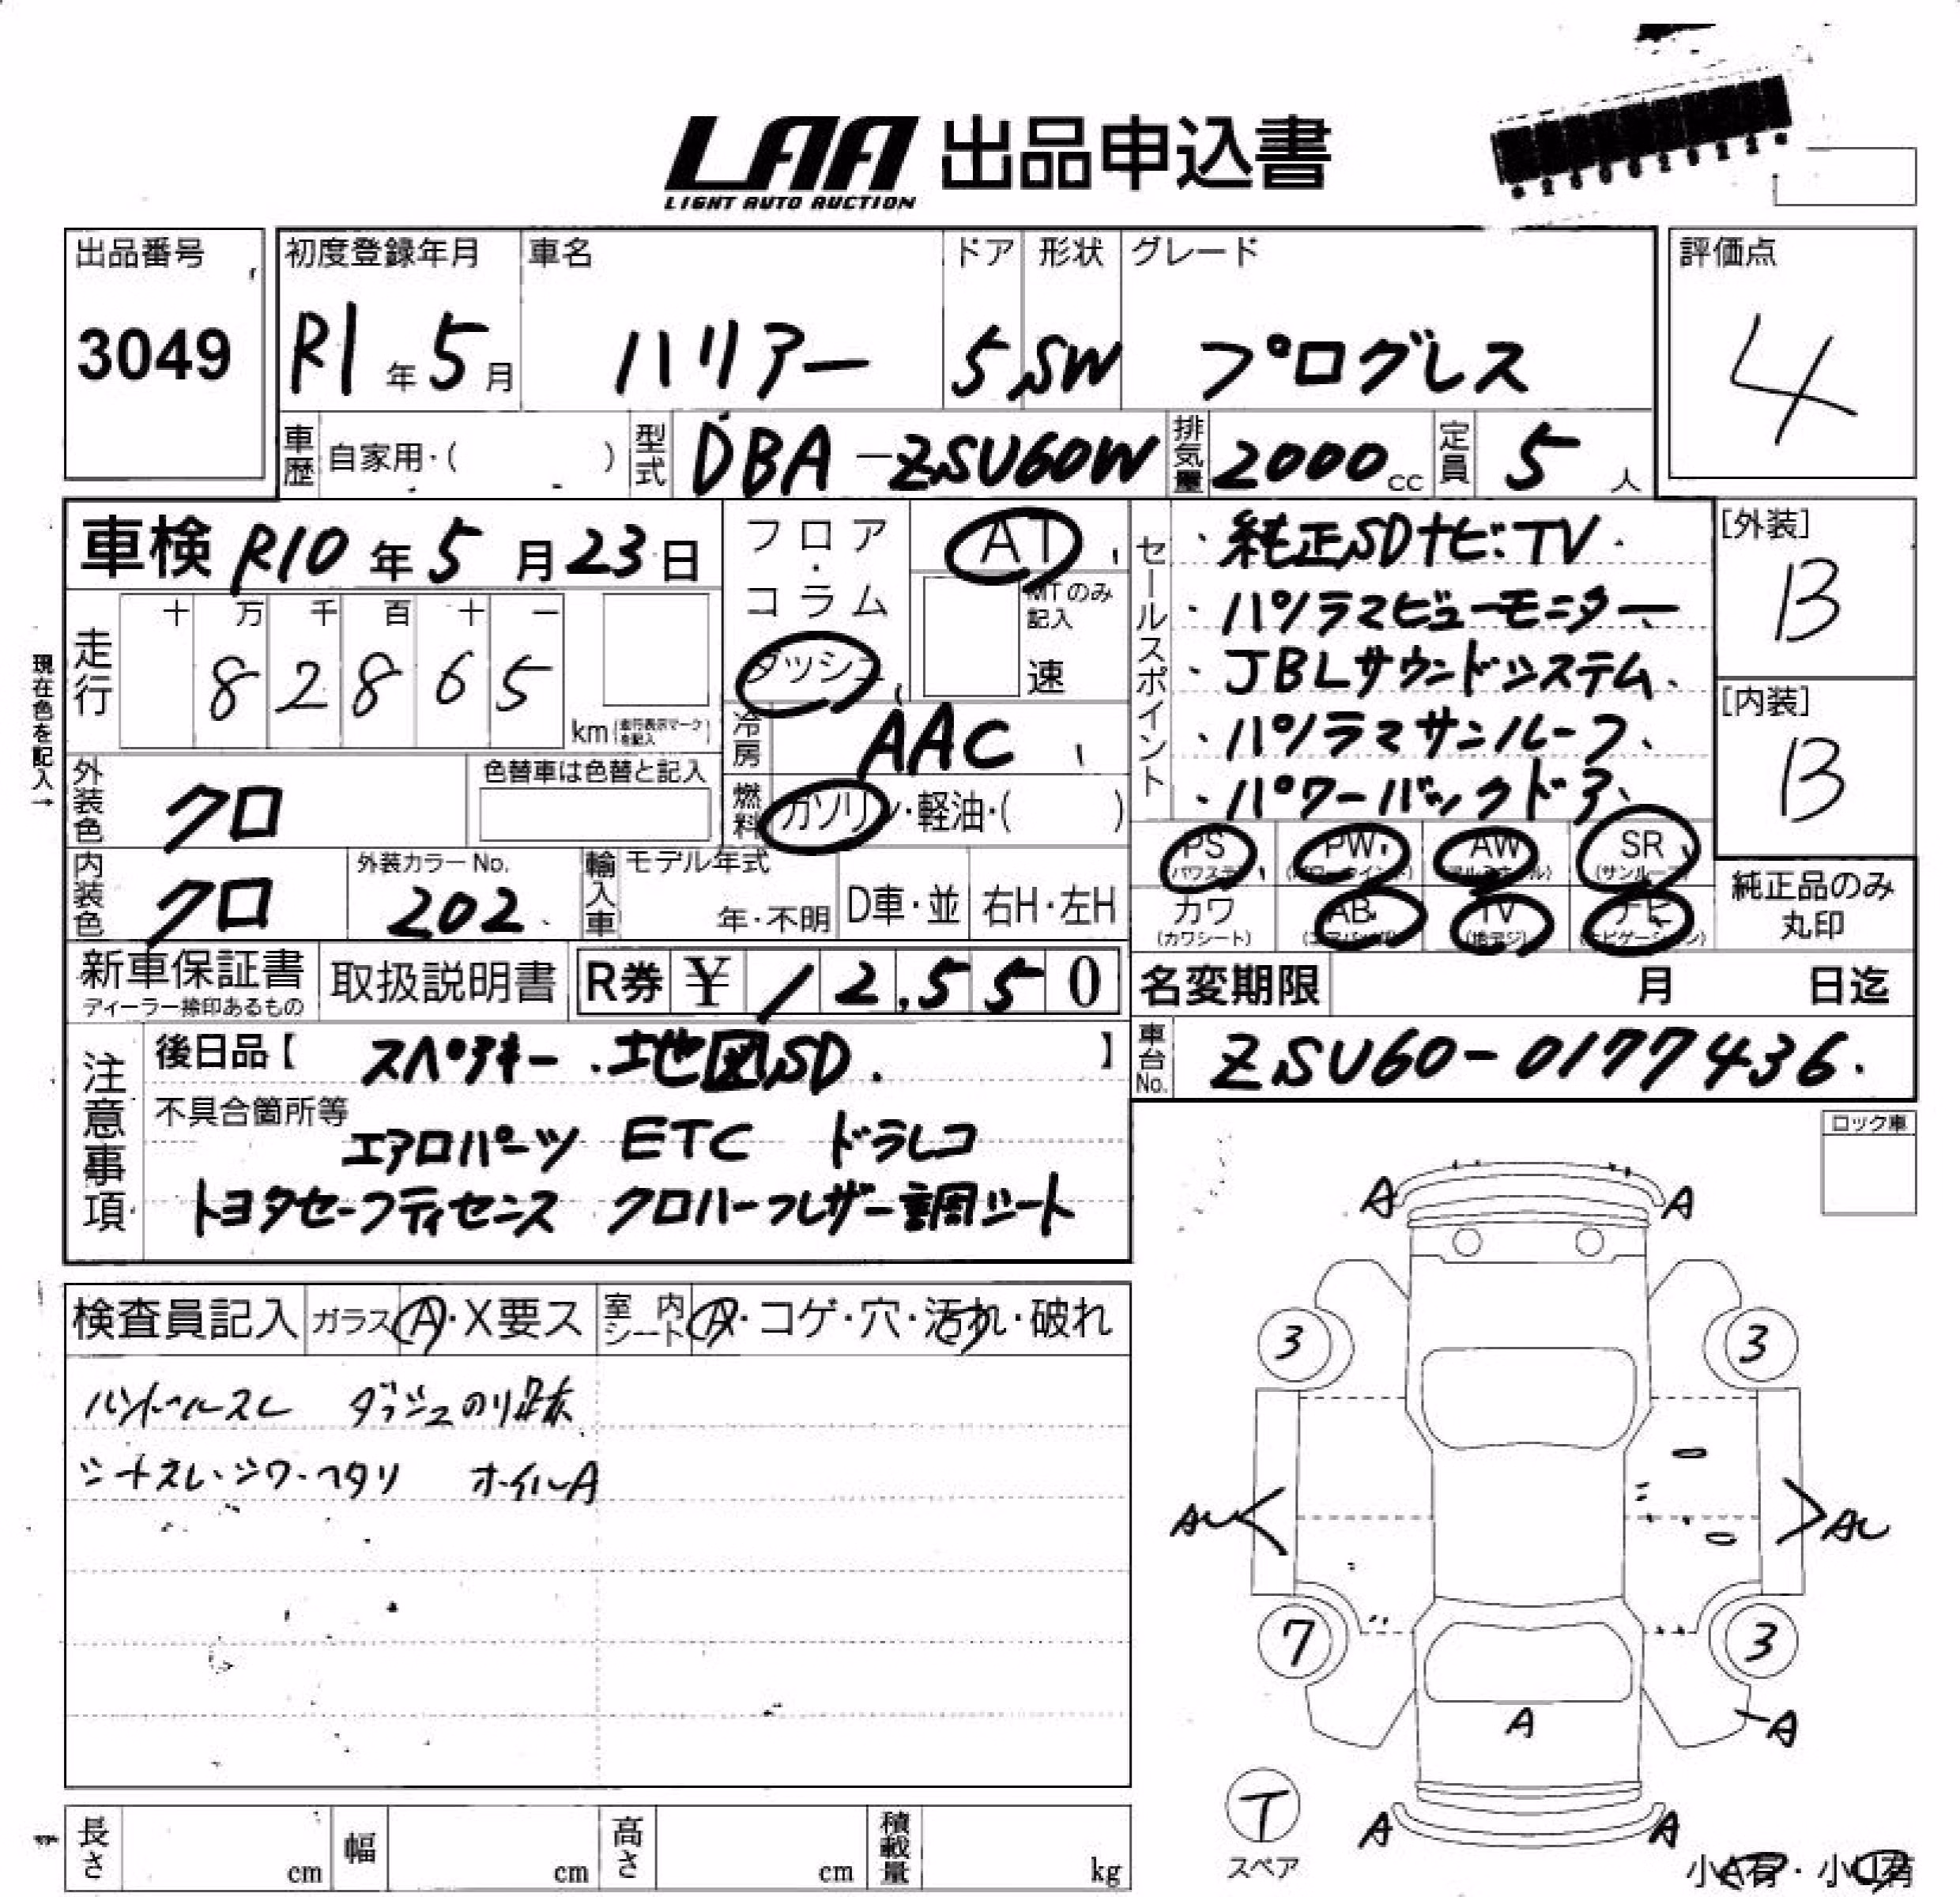 LAA 出品申込書
LIGHT AUTO AUCTION
出品番号
3049
初度登録年月
R1年5月
車名
ハリアー
ドア
5
形状
SW
グレード
プログレス
評価点
4
車歴 自家用・( )
型式 DBA-ZSU60W
排気量 2000cc
定員 5人
車検 R10年5月23日
フロア・コラム
ダッシュ
AT
MTのみ記入
速
セールスポイント
・純正SDナビ・TV
・パノラマビューモニター
・JBLサウンドシステム
・パノラマサンルーフ
・パワーバックドア
[外装]
B
[内装]
B
現在色を記入→
走行
十 万 千 百 十 一
8 2 8 6 5
km (走行表示マークを記入)
冷房 AAC
燃料 ガソリン・軽油・( )
外装色 クロ
色替車は色替と記入
内装色 クロ
外装カラーNo.
202
輸入車
モデル年式
年・不明
D車・並
右H・左H
PS (パワステ)
PW (パワーウインド)
AW (アルミホイル)
SR (サンルーフ)
カワ (カワシート)
AB (エアバッグ)
TV (地デジ)
ナビ (ナビゲーション)
純正品のみ丸印
新車保証書
ディーラー捺印あるもの
取扱説明書
R券 ¥ 12,550
名変期限 月 日迄
車台No. ZSU60-0177436
注意事項
後日品【 スペアキー・地図SD 】
不具合箇所等
エアロパーツ ETC ドラレコ
トヨタセーフティセンス クロハーフレザー調シート
ロック車
検査員記入
ガラス A・X要ス
室内シート A・コゲ・穴・汚れ・破れ
ハンドルスレ ダッシュのり跡
シートスレ・シワ・ヘタリ ホイルA
A A
3 3
7 3
A
A
A A
T
スペア
小A有・小U有
長さ cm
幅 cm
高さ cm
積載量 kg